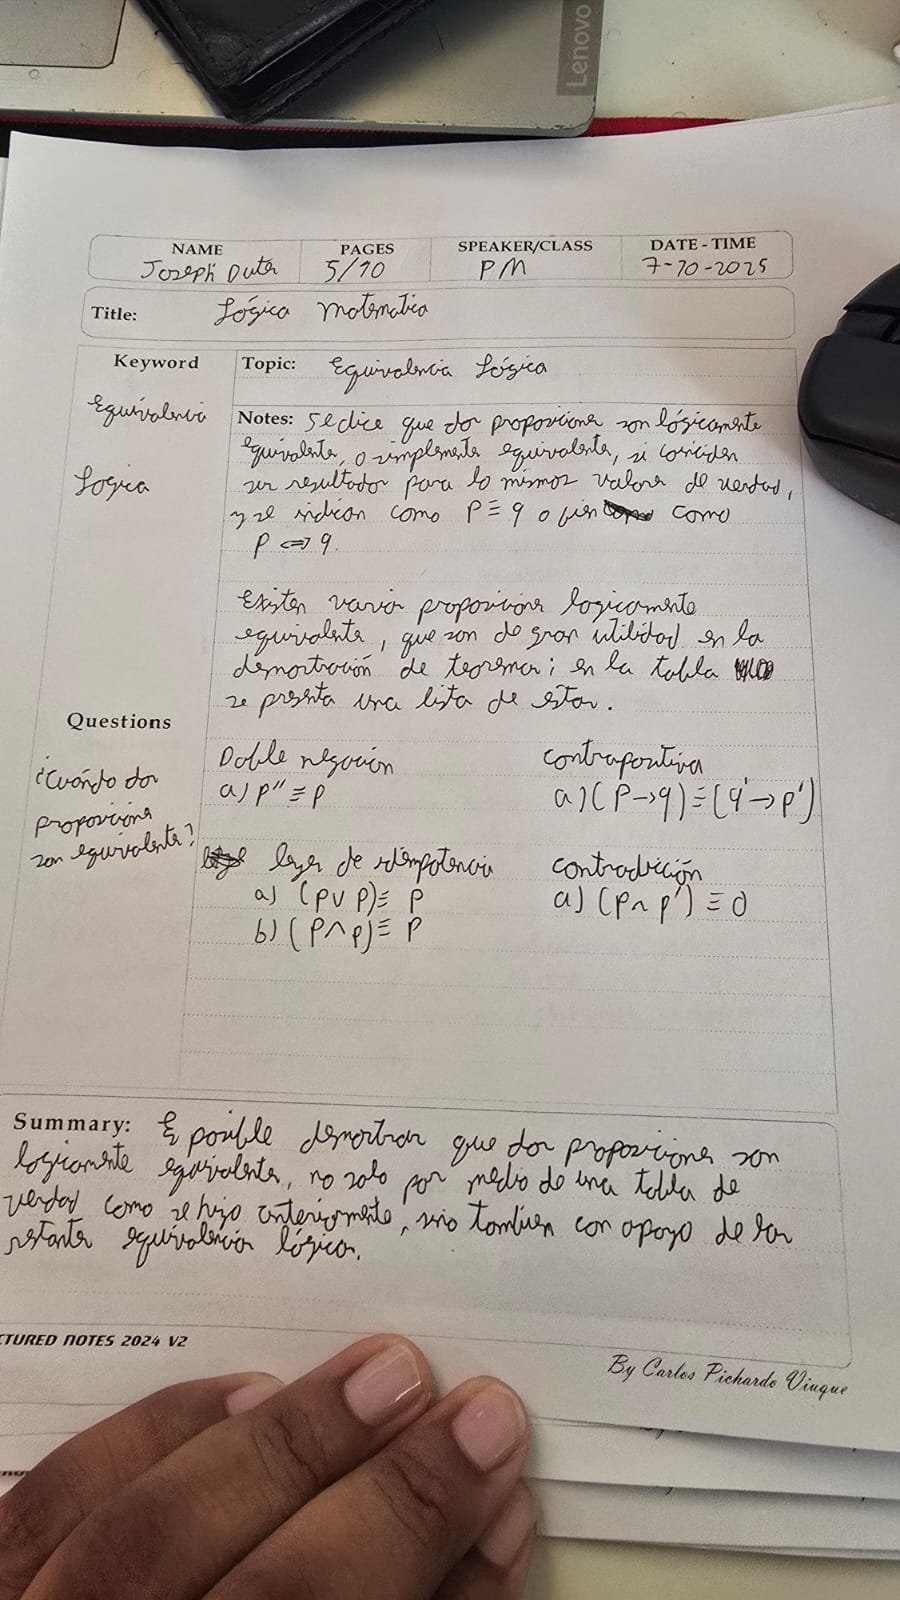 Lenovo
NAME PAGES SPEAKER/CLASS DATE - TIME
Joseph Duta 5/10 PM 7-10-2025
Title: Lógica Matematica
Keyword
Equivalencia
Logica
Topic: Equivalencia Lógica
Notes: Se dice que dos proposiciones son lógicamente
equivalentes, o simplemente equivalentes, si coinciden
sus resultados para lo mismos valores de verdad,
y se indican como P ≡ q o bien como
P ⟺ q.
Existen varias proposiciones logicamente
equivalentes, que son de gran utilidad en la
demostración de teoremas; en la tabla
se presenta una lista de estas.
Questions
¿Cuándo dos
proposiciones
son equivalentes?
Doble negación
a) p'' ≡ p
contrapositiva
a) (P → q) ≡ (q' → p')
leyes de idempotencia
a) (p ∨ p) ≡ p
b) (p ∧ p) ≡ p
contradicción
a) (p ∧ p') ≡ 0
Summary: Es posible demostrar que dos proposiciones son
logicamente equivalentes, no solo por medio de una tabla de
verdad como se hizo anteriormente, sino tambien con apoyo de las
restantes equivalencias lógicas.
CTURED NOTES 2024 V2
By Carlos Pichardo Viuque